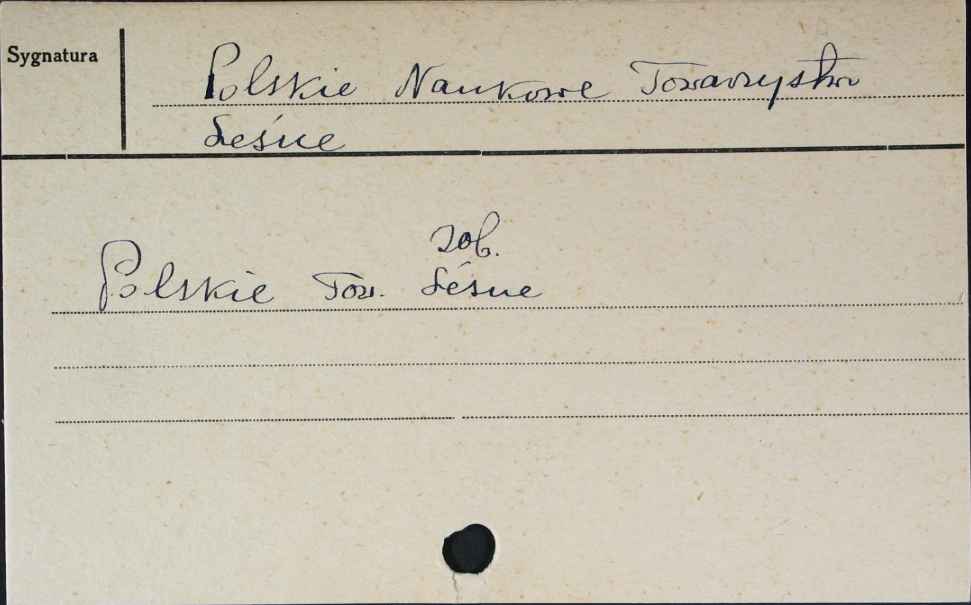 Sygnatura
Polskie Naukowe Towarzystwo
Leśne
zob.
Polskie Tow. Leśne